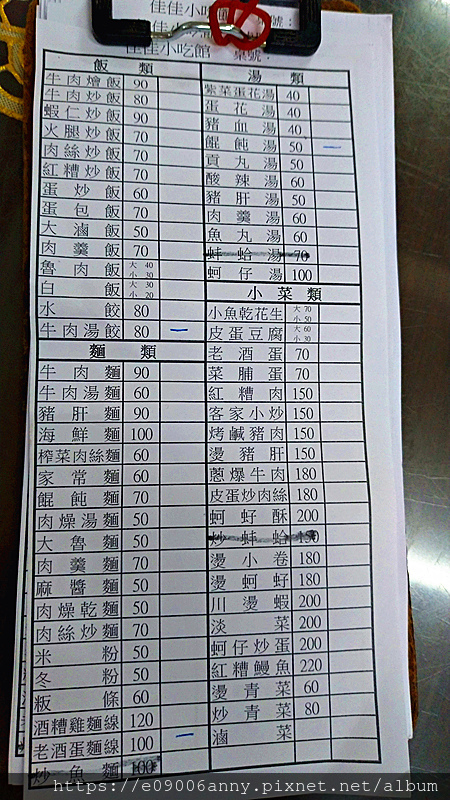 佳佳小吃館
飯 類
牛肉燴飯 90
牛肉炒飯 80
蝦仁炒飯 90
火腿炒飯 70
肉絲炒飯 70
紅糟炒飯 70
蛋炒飯 60
蛋包飯 70
大滷飯 50
肉羹飯 70
魯肉飯 大 40 小 30
白飯 大 30 小 20
水餃 80
牛肉湯餃 80 一
麵 類
牛肉麵 90
牛肉湯麵 60
豬肝麵 90
海鮮麵 100
榨菜肉絲麵 60
家常麵 60
餛飩麵 70
肉燥湯麵 50
大魯麵 50
肉羹麵 70
麻醬麵 50
肉燥乾麵 50
肉絲炒麵 70
米粉 50
冬粉 50
粄條 60
酒糟雞麵線 120
老酒蛋麵線 100 一
炒魚麵 100
湯 類
紫菜蛋花湯 40
蛋花湯 40
豬血湯 40
餛飩湯 50 一
貢丸湯 50
酸辣湯 60
豬肝湯 50
肉羹湯 60
魚丸湯 60
蚌蛤湯 70
蚵仔湯 100
小 菜 類
小魚乾花生 大 70 小 50
皮蛋豆腐 大 60 小 30
老酒蛋 70
菜脯蛋 70
紅糟肉 150
客家小炒 150
烤鹹豬肉 150
燙豬肝 150
蔥爆牛肉 180
皮蛋炒肉絲 180
蚵虷酥 200
炒蚌蛤 150
燙小卷 180
燙蚵虷 180
川燙蝦 200
淡菜 200
蚵仔炒蛋 200
紅糟鰻魚 220
燙青菜 60
炒青菜 80
滷菜
https://e09006anny.pixnet.net/album